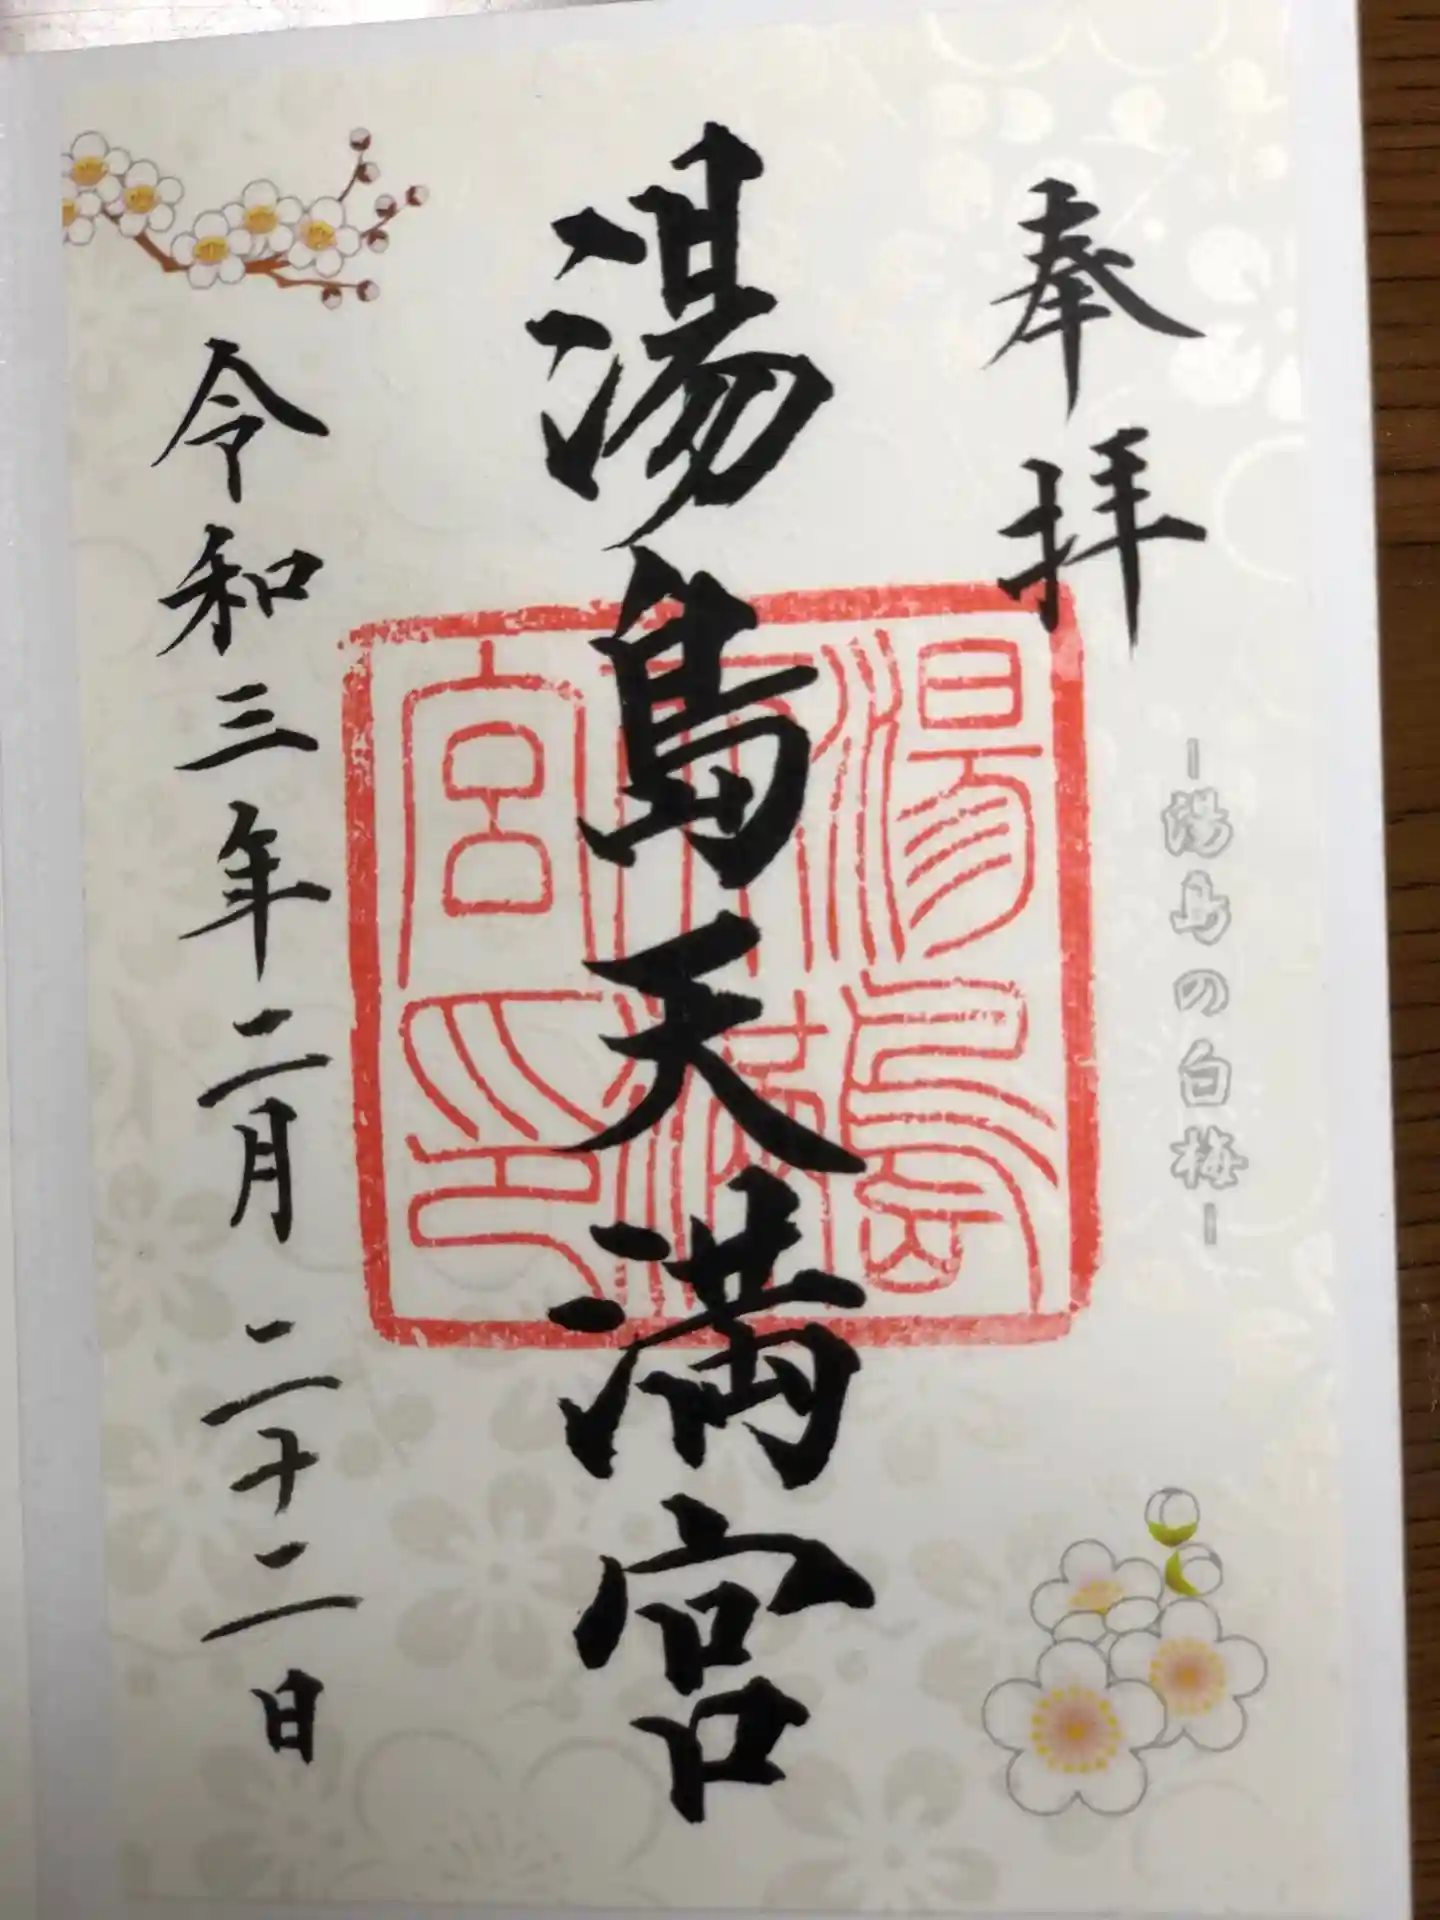 奉拝
ー湯島の白梅ー
湯島天満宮
湯島天満宮印
令和三年二月二十二日